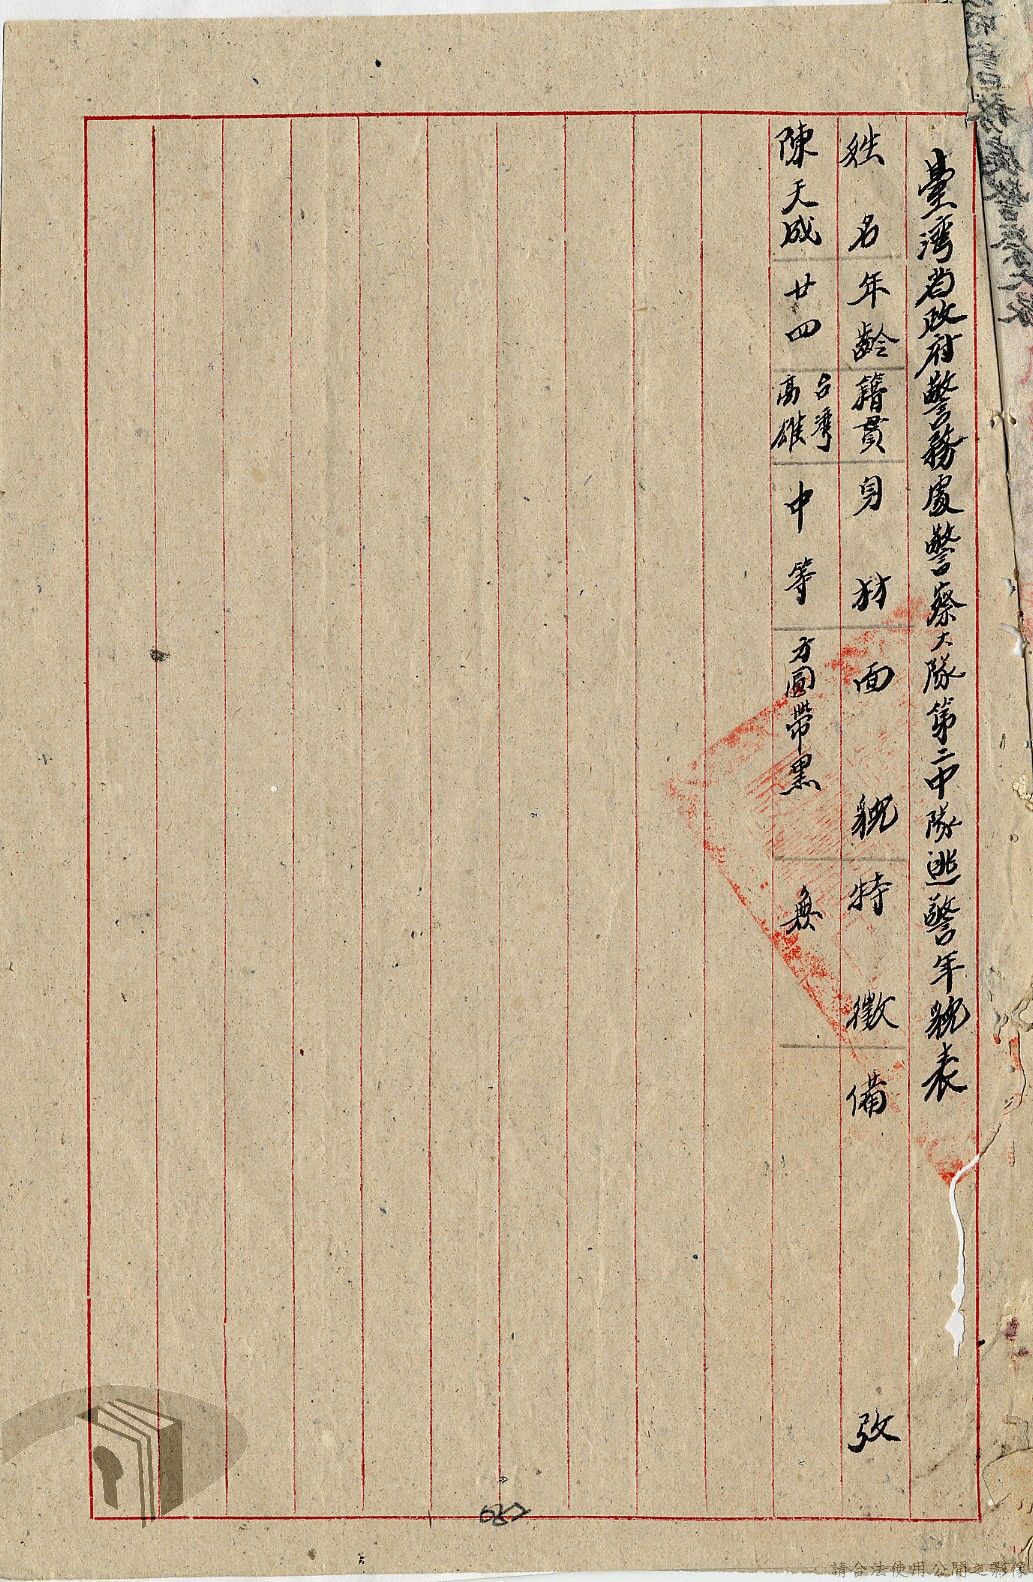 臺灣省政府警務處警察大隊第二中隊逃警年貌表
姓名 年齡 籍貫 身材 面貌 特徵 備攷
陳天成 廿四 台灣高雄 中等 方圓帶黑 無
請合法使用公開之影像